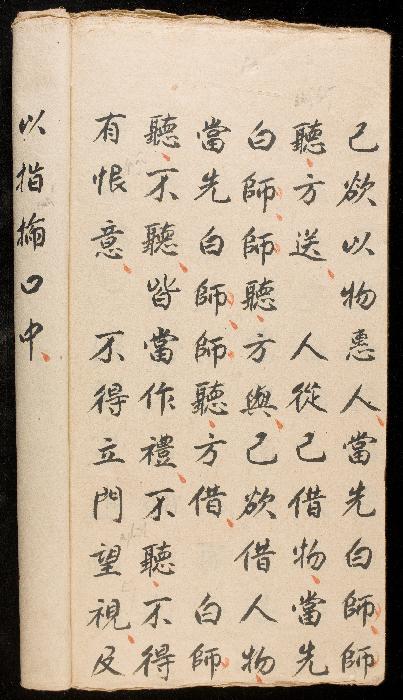 己欲以物惠人當先白師師
聽方送 人從己借物當先
白師師聽方與己欲借人物
當先白師師聽方借 白師
聽不聽皆當作禮不聽不得
有恨意 不得立門望視及
以指口中